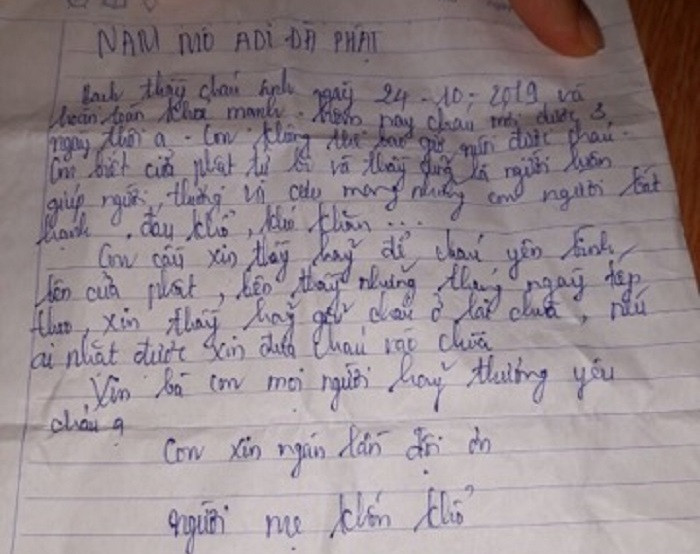 NAM MÔ ADI ĐÀ PHẬT
Bạch thầy cháu sinh ngày 24-10-2019 và
hoàn toàn khỏe mạnh. Hôm nay cháu mới được 3
ngày thôi ạ. Con không thể bao giờ nuôi được cháu.
Con biết cửa phật từ bi và thầy cũng là người luôn
giúp người, thương và cưu mang những con người bất
hạnh, đau khổ, khó khăn...
Con cầu xin thầy hãy để cháu yên bình
bên cửa phật, bên thầy những tháng ngày tiếp
theo, xin thầy hãy giữ cháu ở lại chùa, nếu
ai nhặt được xin đưa cháu vào chùa
Xin bà con mọi người hãy thương yêu
cháu ạ
Con xin ngàn lần đội ơn
người mẹ khốn khổ